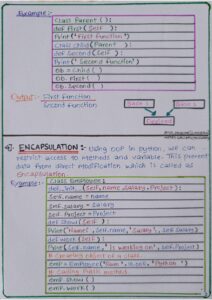 Example:-
Class Parent ():
def First (Self):
Print ("First function")
Class Child (Parent):
def Second (Self):
Print ("Second function")
Ob = Child ()
Ob. First ()
Ob. Second ()
Output:-
First function
Second function
ENCAPSULATION : Using OOP in python, we can
restrict access to methods and variable. This prevent
data from direct modification which is called as
Encapsulation
Example:
Class Employee:
def __init__(Self, name, Salary, Project):
Self. name = name
Self. Salary = Salary
Self. Project = Project
def Show (Self):
Print ("Name:", Self. name, "Salary", Self. Salary)
def work (Self):
Print (Self. name, "is working on", Self. Project)
# Creating object of a class
# Calling Public method
emp. Show ()
emp. work ()